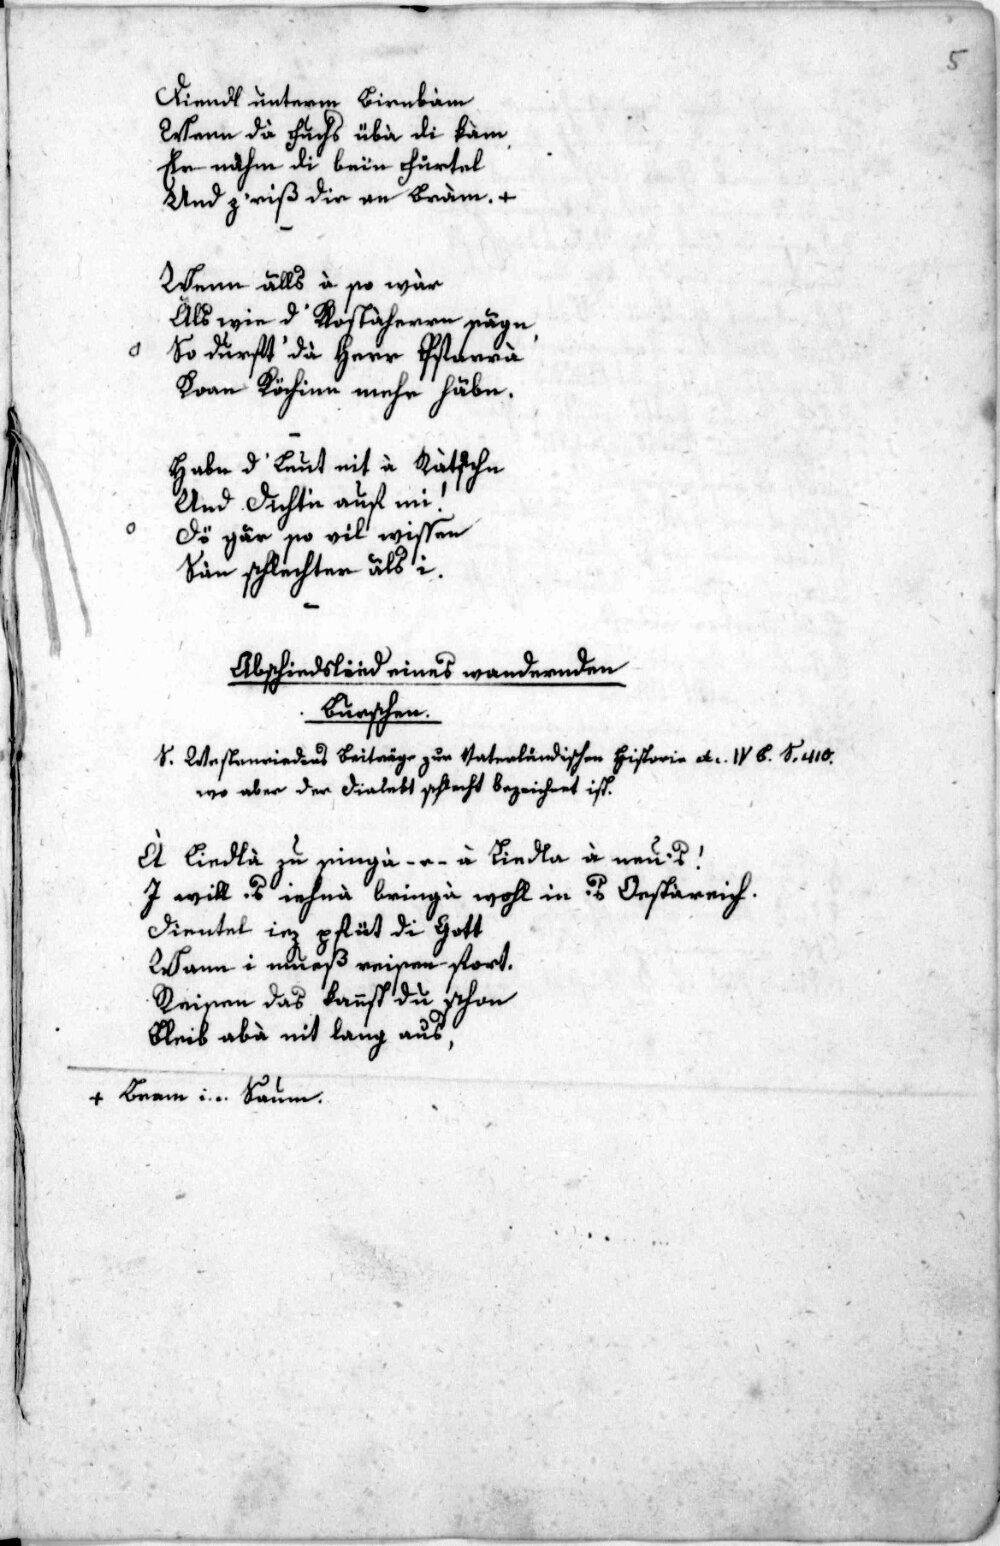 5
Diendl unterm Birnbàm
Wenn dà Fuchs übà di kàm,
Er nàhm di bein Fürtel
Und z'riß dir an Bràm. +
Wenn älls à so wàr
Äls wie d' Klostàherrn sägn,
o So durft' dà Herr Pfarrà
Koan Köchinn mehr häbn.
Habn d' Leut nit à Ràtschn
Und Dichtn auf mi!
o Dö gär so vil wissen
Sàn schlechter äls i.
Abschiedslied eines wandernden
Burschen.
S. Westenrieders Beiträge zur Vaterländischen Historie etc. IV B. S. 410.
wo aber der Dialekt schlecht bezeichnet ist.
À Liedlà zu singà -r- à Liedla à neu's!
I will 's iehnà bringà wohl in 's Oestàreich.
Dientel iez pfüt di Gott
Wann i mueß reisen fort.
Reisen das kannst du schon
Bleib abà nit lang aus,
+ Bram i.e. Saum.